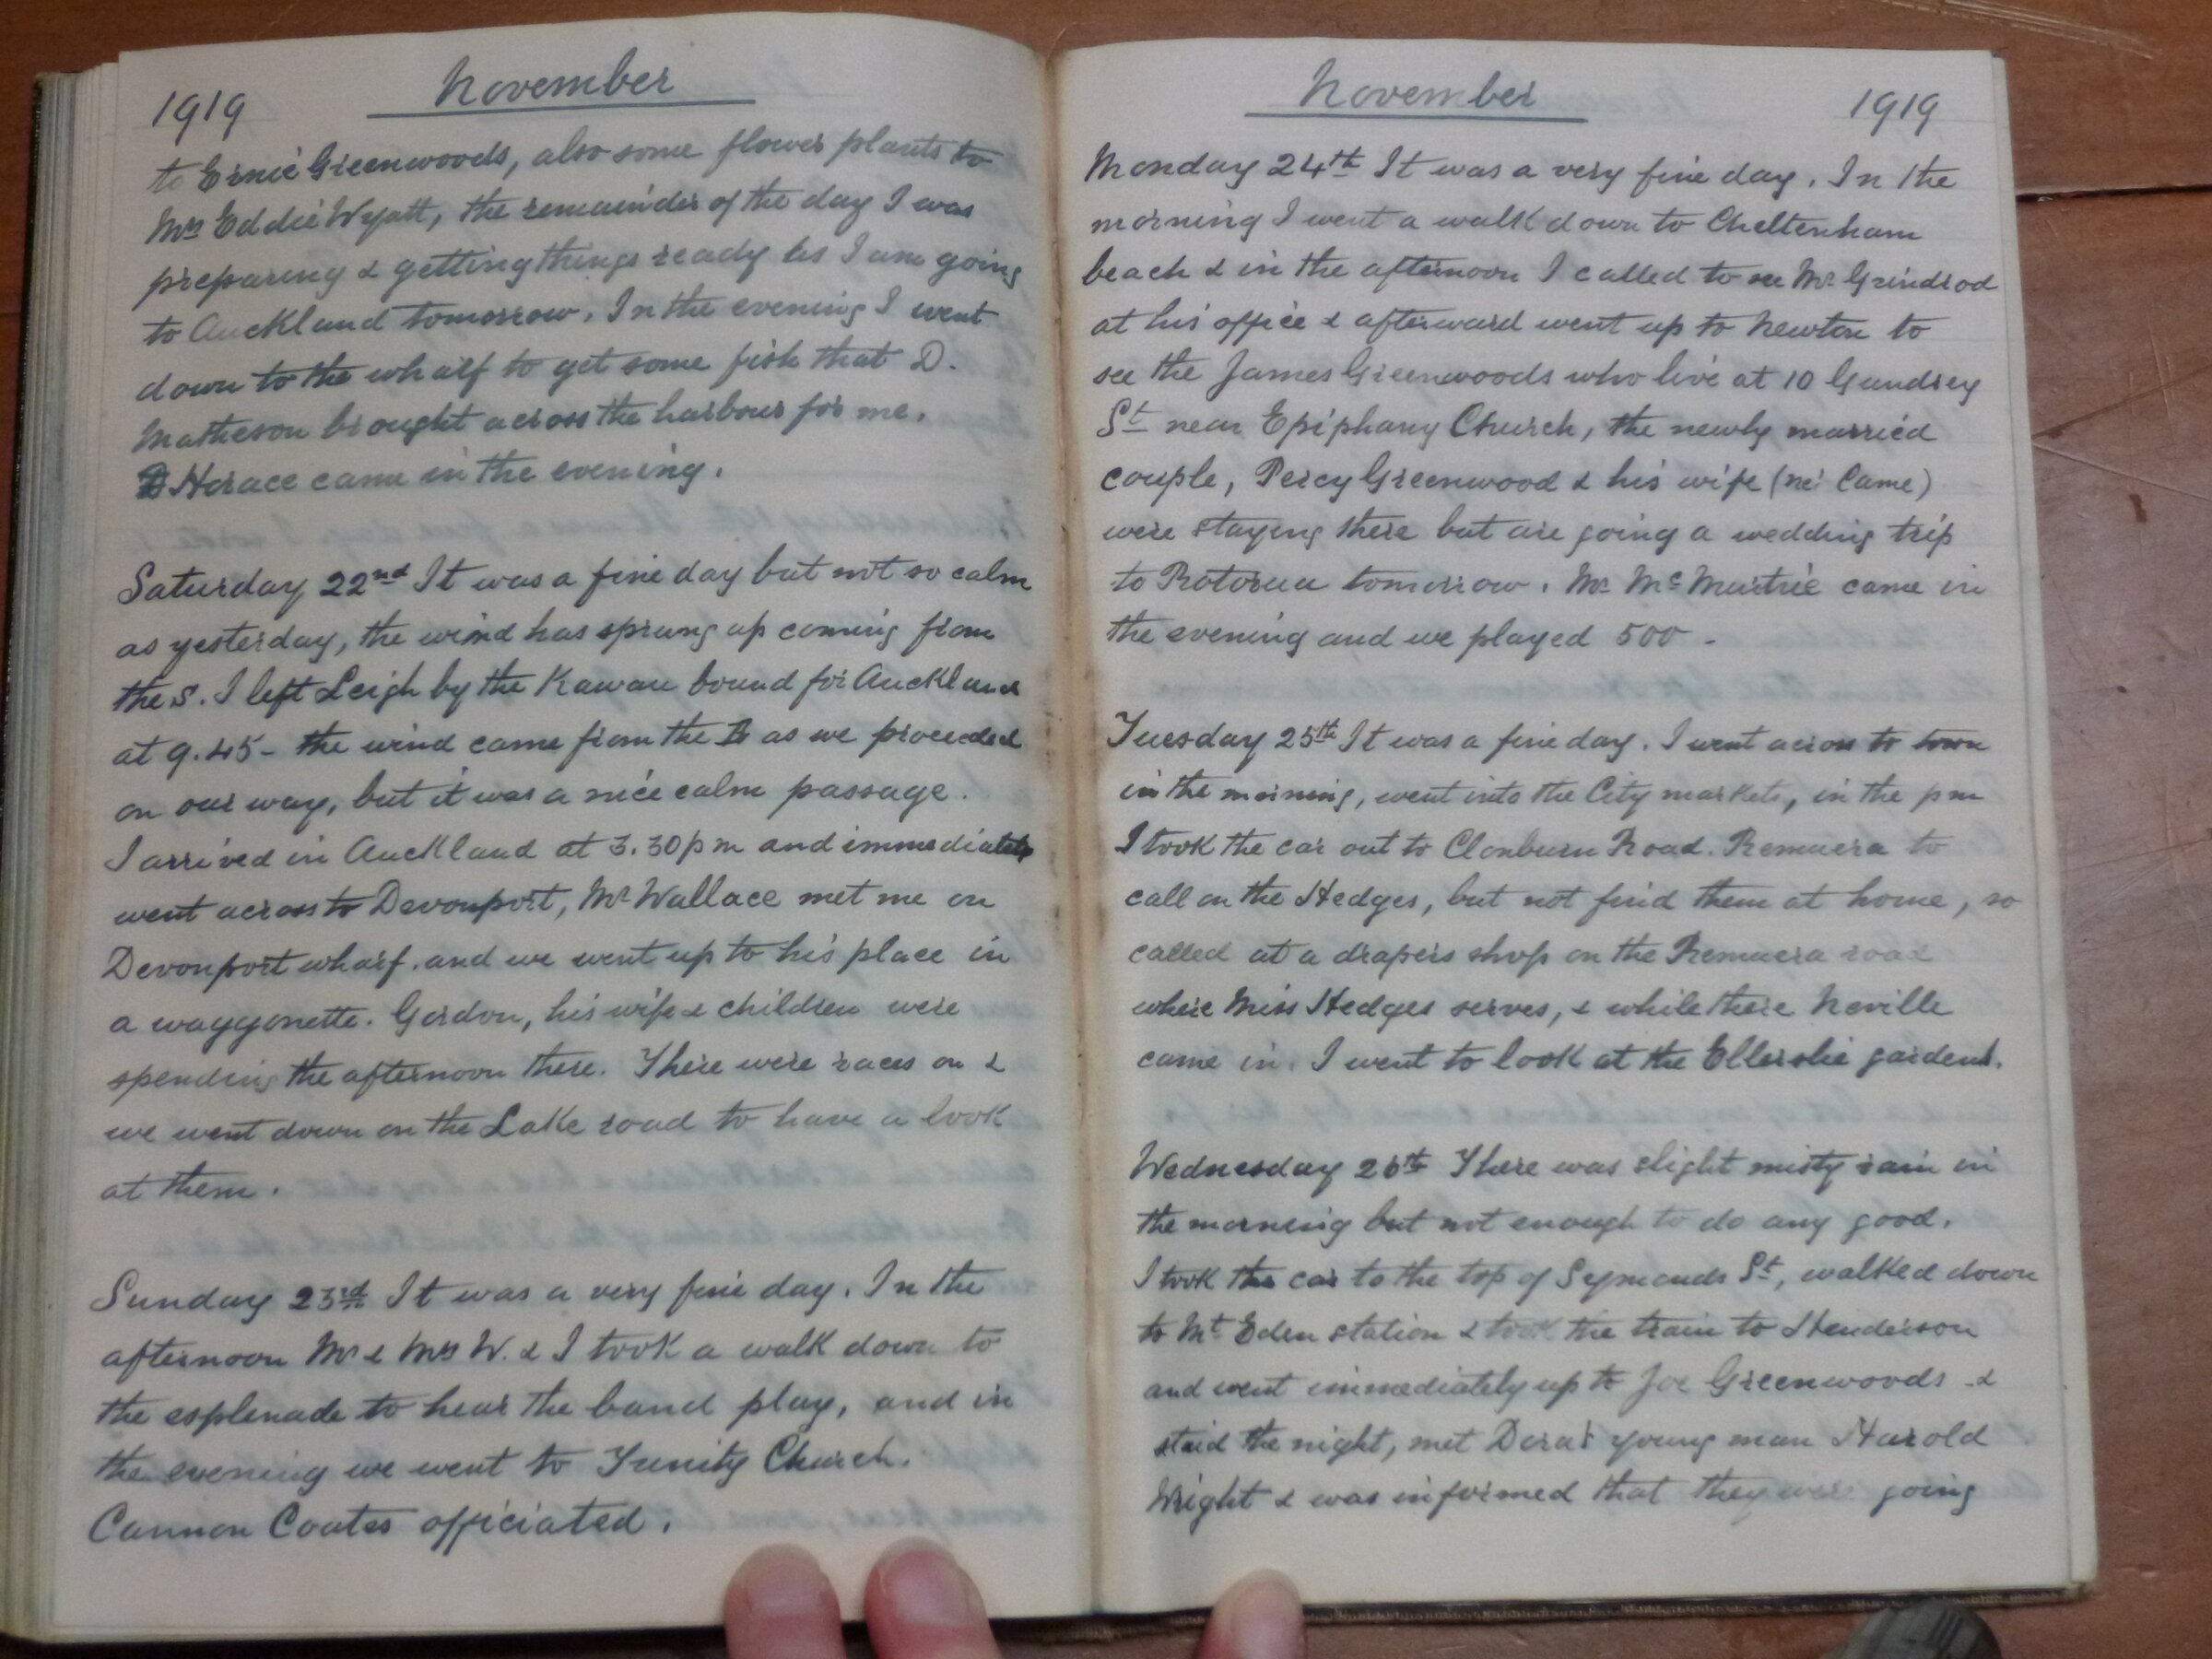 1919 November
to Ernie Greenwoods, also some flower plants to
Mrs Eddie Wyatt, the remainder of the day I was
preparing & getting things ready as I am going
to Auckland tomorrow. In the evening I went
down to the wharf to get some fish that D.
Matheson brought across the harbour for me.
Horace came in the evening.
Saturday 22nd It was a fine day but not so calm
as yesterday, the wind has sprung up coming from
the S. I left Leigh by the Kawau bound for Auckland
at 9.45 - the wind came from the as we proceeded
on our way, but it was a nice calm passage.
I arrived in Auckland at 3.30 pm and immediately
went across to Devonport, Mr Wallace met me on
Devonport wharf. and we went up to his place in
a waggonette. Gordon, his wife & children were
spending the afternoon there. There were races on &
we went down on the Lake road to have a look
at them.
Sunday 23rd It was a very fine day. In the
afternoon Mr & Mrs W. & I took a walk down to
the esplenade to hear the band play, and in
the evening we went to Trinity Church.
Cannon Coates officiated.
November 1919
Monday 24th It was a very fine day. In the
morning I went a walk down to Cheltenham
beach & in the afternoon I called to see Mr Grindrod
at his office & afterward went up to Newton to
see the James Greenwoods who live at 10 Gundrey
St near Epiphany Church, the newly married
couple, Percy Greenwood & his wife (ne' Came)
were staying there but are going a wedding trip
to Rotorua tomorrow. Mr McMurtrie came in
the evening and we played 500 -
Tuesday 25th It was a fine day. I went across to town
in the morning, went into the City markets, in the pm
I took the car out to Clonburn Road. Remuera to
call on the Hedges, but not find them at home, so
called at a drapers shop on the Remuera road
where Miss Hedges serves, & while there Neville
came in. I went to look at the Ellerslie gardens.
Wednesday 26th There was slight misty rain in
the morning but not enough to do any good.
I took the car to the top of Symonds St, walked down
to Mt Eden station & took the train to Henderson
and went immediately up to Joe Greenwoods &
staid the night, met Dora's young man Harold
Wright & was informed that they were going